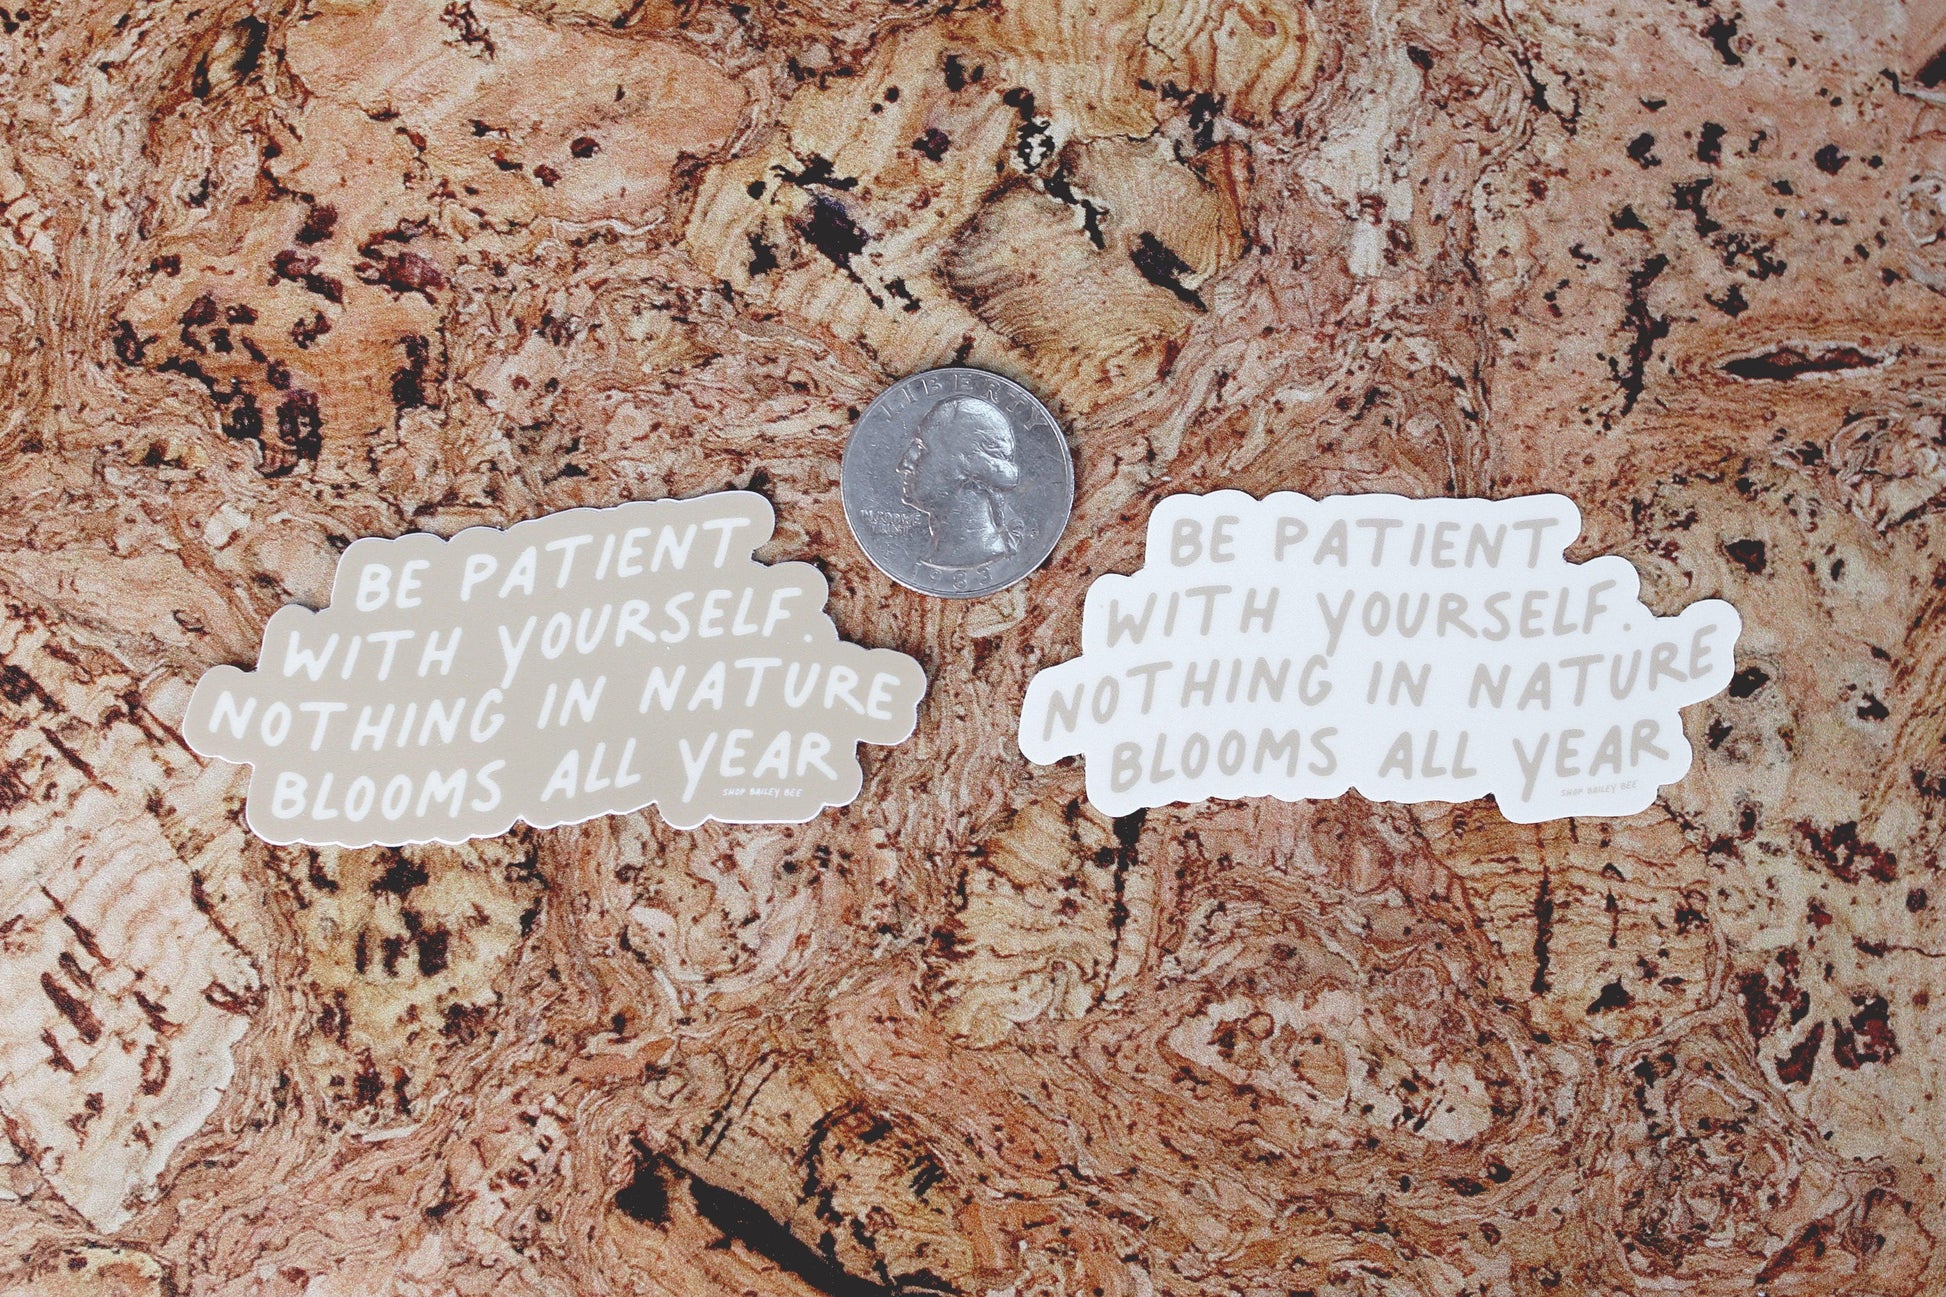 LIBERTY
1985
BE PATIENT
WITH YOURSELF.
NOTHING IN NATURE
BLOOMS ALL YEAR
SHOP BAILEY BEE
BE PATIENT
WITH YOURSELF.
NOTHING IN NATURE
BLOOMS ALL YEAR
SHOP BAILEY BEE